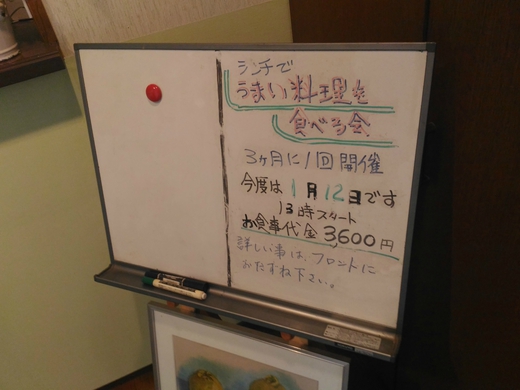 ランチで
うまい料理を
食べる会
3ヶ月に1回開催
今度は1月12日です
13時スタート
お食事代金3600円
詳しい事は、フロントに
おたずね下さい。